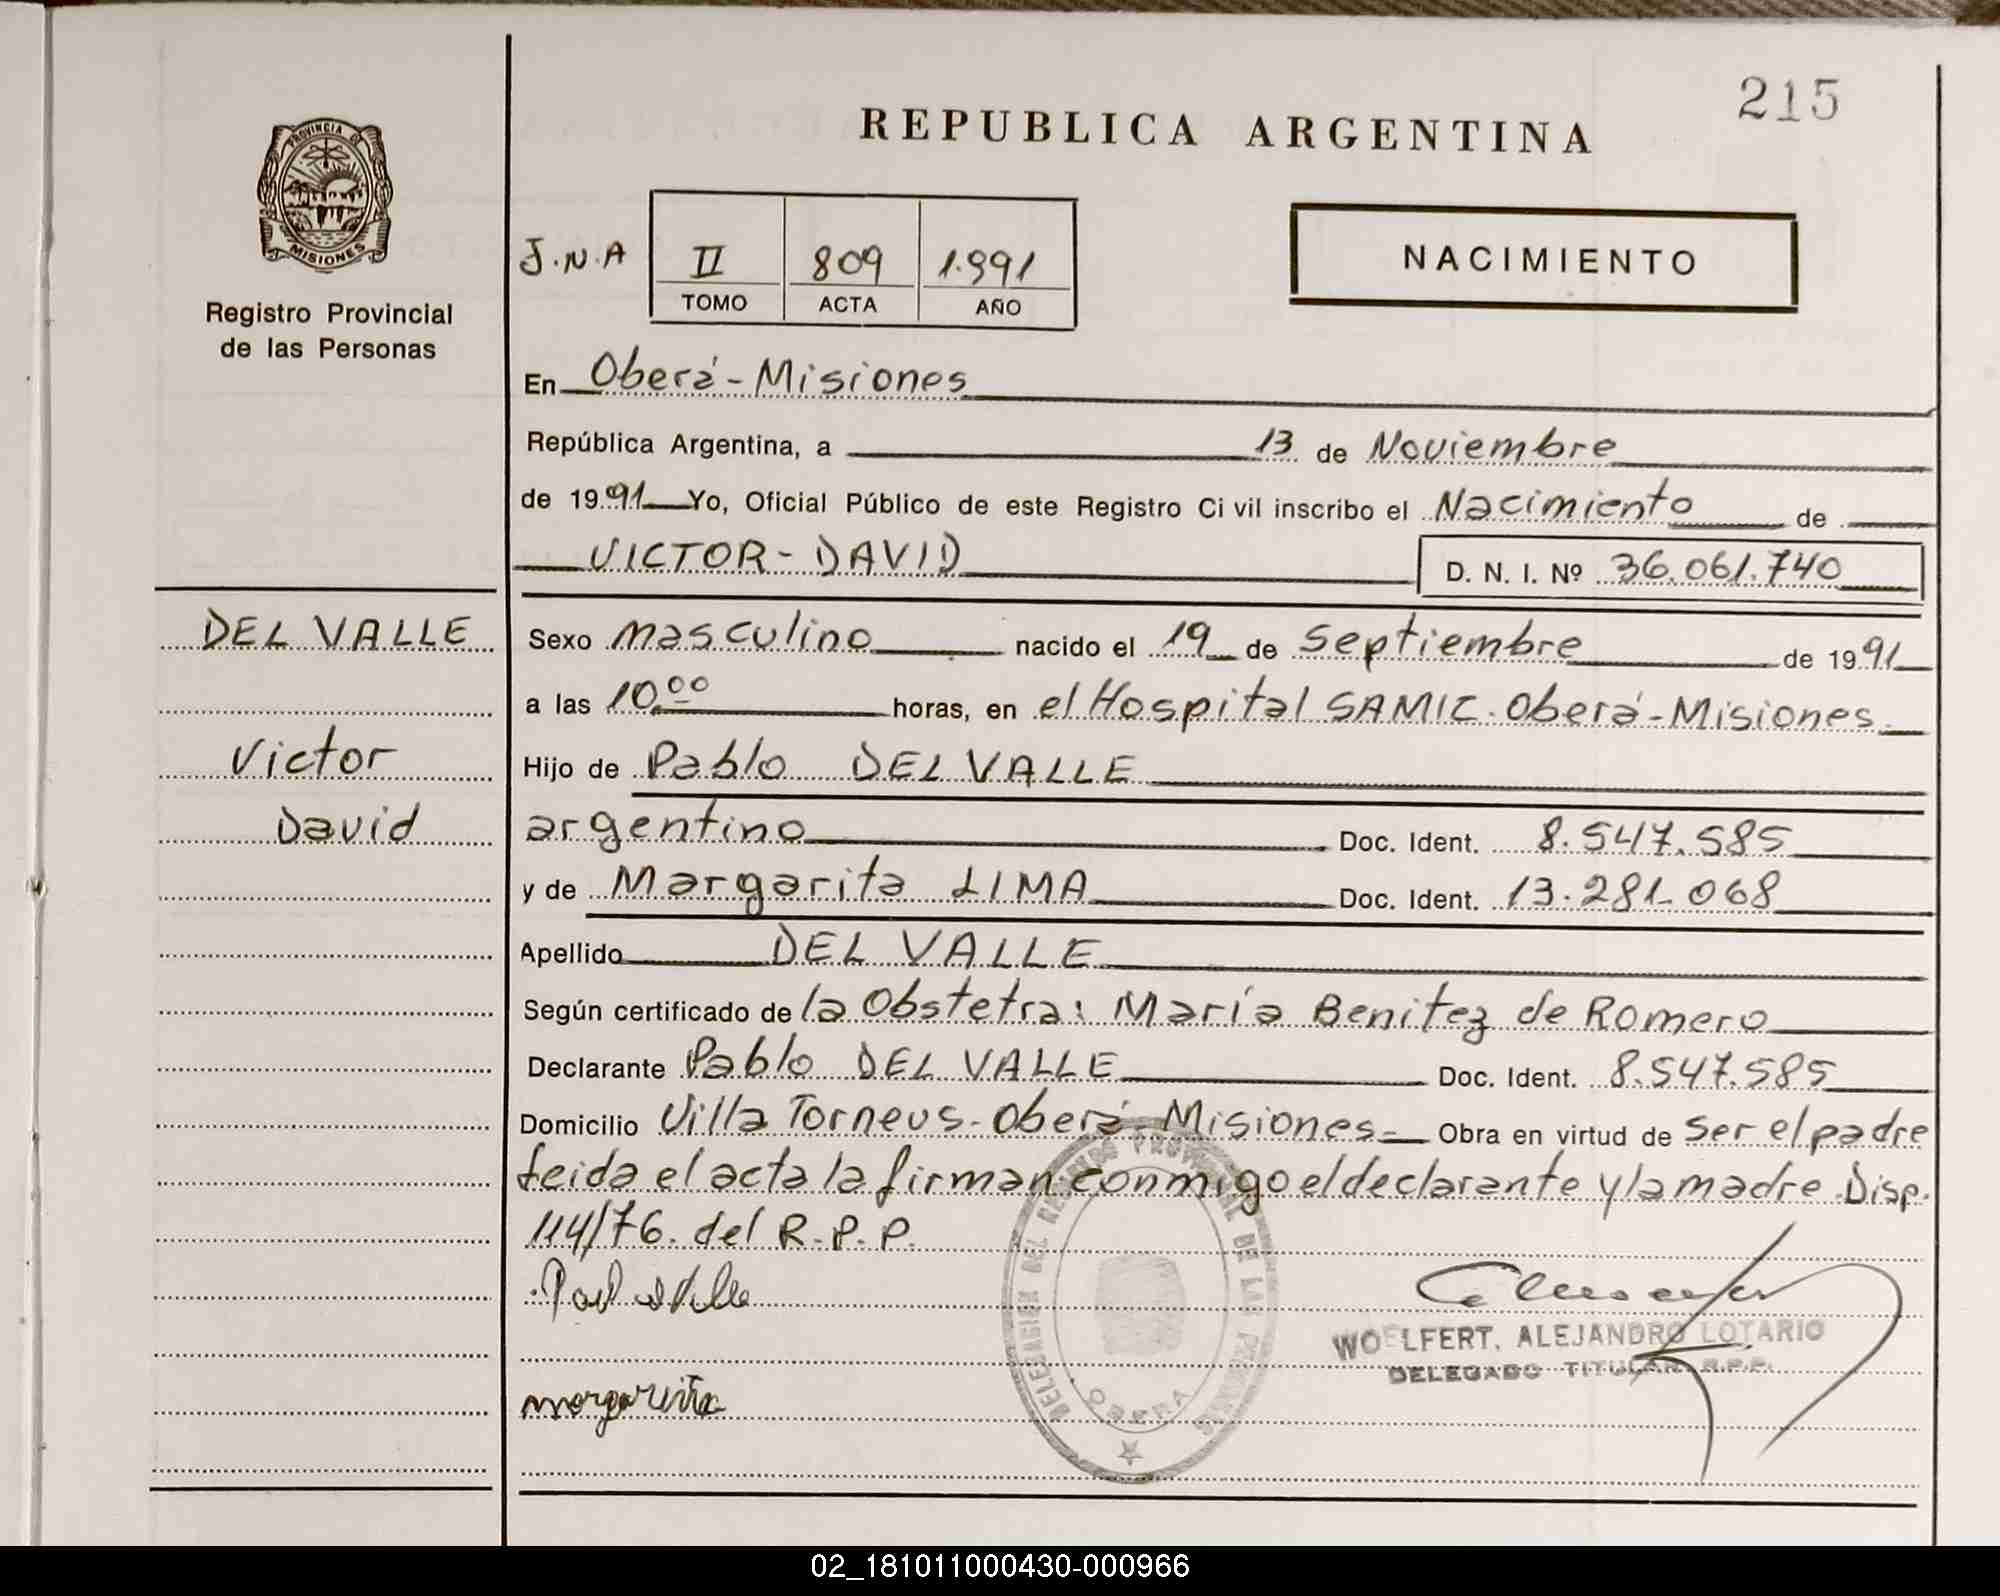 215
REPUBLICA ARGENTINA
PROVINCIA DE
MISIONES
Registro Provincial
de las Personas
J.N.A
II 809 1.991
TOMO ACTA AÑO
NACIMIENTO
En Oberá - Misiones
República Argentina, a 13 de Noviembre
de 1991 Yo, Oficial Público de este Registro Ci vil inscribo el Nacimiento de
VICTOR - DAVID D. N. I. Nº 36.061.740
DEL VALLE
Victor
David
Sexo masculino nacido el 19 de septiembre de 1991
a las 10,00 horas, en el Hospital SAMIC. Oberá - Misiones.
Hijo de Pablo DEL VALLE
argentino Doc. Ident. 8.547.585
y de Margarita LIMA Doc. Ident. 13.281.068
Apellido DEL VALLE
Según certificado de la Obstetra: María Benitez de Romero
Declarante Pablo DEL VALLE Doc. Ident. 8.547.585
Domicilio Villa Torneus - Oberá - Misiones - Obra en virtud de ser el padre
leida el acta la firman conmigo el declarante y la madre. Disp.
114/76. del R.P.P.
DELEGACION DEL REGISTRO PROVINCIAL DE LAS PERSONAS
OBERA
WOELFERT, ALEJANDRO LOTARIO
DELEGADO TITULAR R.P.P.
margarita
02_181011000430-000966